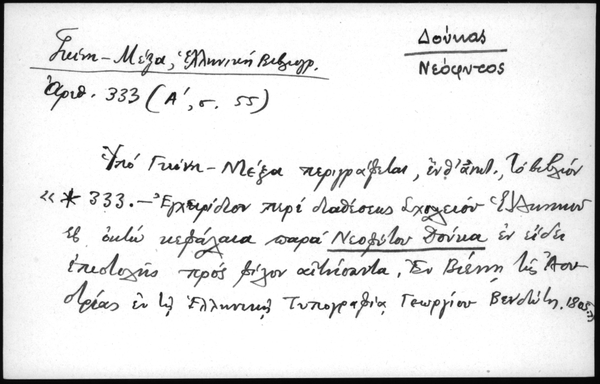 Δούκας
Νεόφυτος
Γκίνη - Μέξα, Ἑλληνική Βιβλιογρ.
ἀριθ. 333 (Α΄, σ. 55)
Ὑπό Γκίνη - Μέξα περιγράφεται, ἐνθ' ἀνωτ., τό βιβλίον
« * 333. — Ἐγχειρίδιον περί διαθέσεως Σχολείου Ἑλληνικοῦ
ἐν ὀκτώ κεφάλαια παρά Νεοφύτου Δούκα ἐν εἴδει
ἐπιστολῆς πρός φίλον αἰτήσαντα, Ἐν Βιέννῃ τῆς Ἀου
στρίας ἐν τῇ Ἑλληνικῇ Τυπογραφίᾳ Γεωργίου Βενδώτη. 1805.»